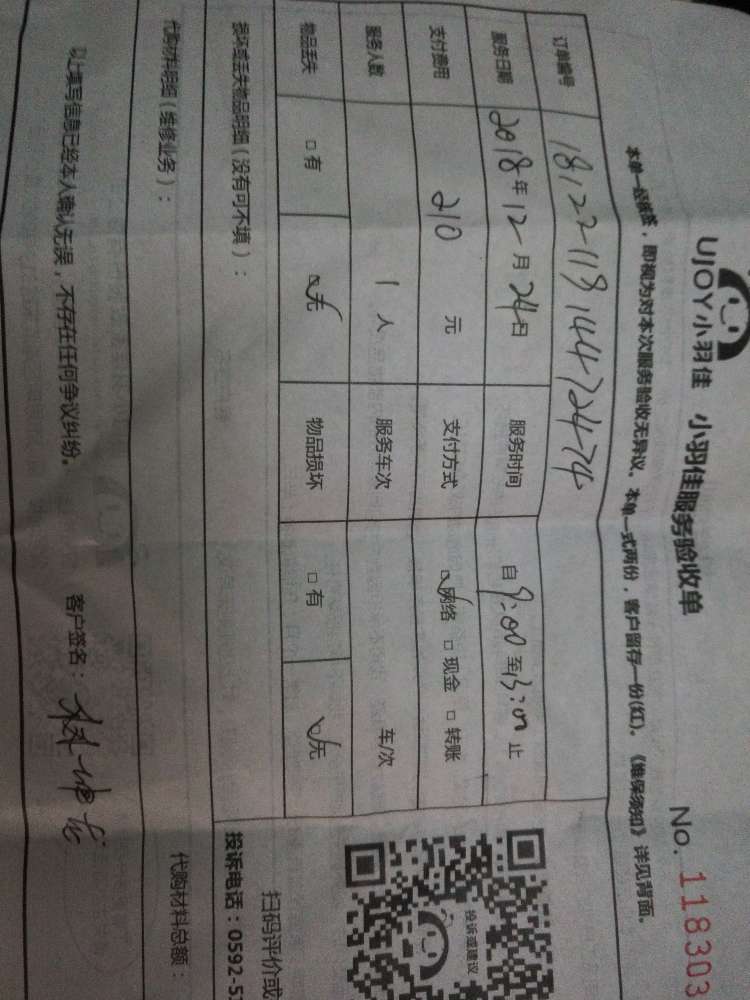 UJOY小羽佳 小羽佳服务验收单 No. 118303
本单一经签签，即视为对本次服务验收无异议。本单一式两份，客户留存一份(红)。《维保须知》详见背面。
订单编号 1812211814472474
服务日期 2018年12月24日 服务时间 自9:00至13:00止
支付费用 210元 支付方式 网络 □现金 □转账
服务人数 1人 服务车次 车/次
物品丢失 □有 无 物品损坏 □有 无
损坏或丢失物品明细（没有可不填）：
代购材料明细（维修业务）： 代购材料总额：
以上填写信息已经本人确认无误，不存在任何争议纠纷。 客户签名：
投诉或建议
扫码评价或
投诉电话：0592-5